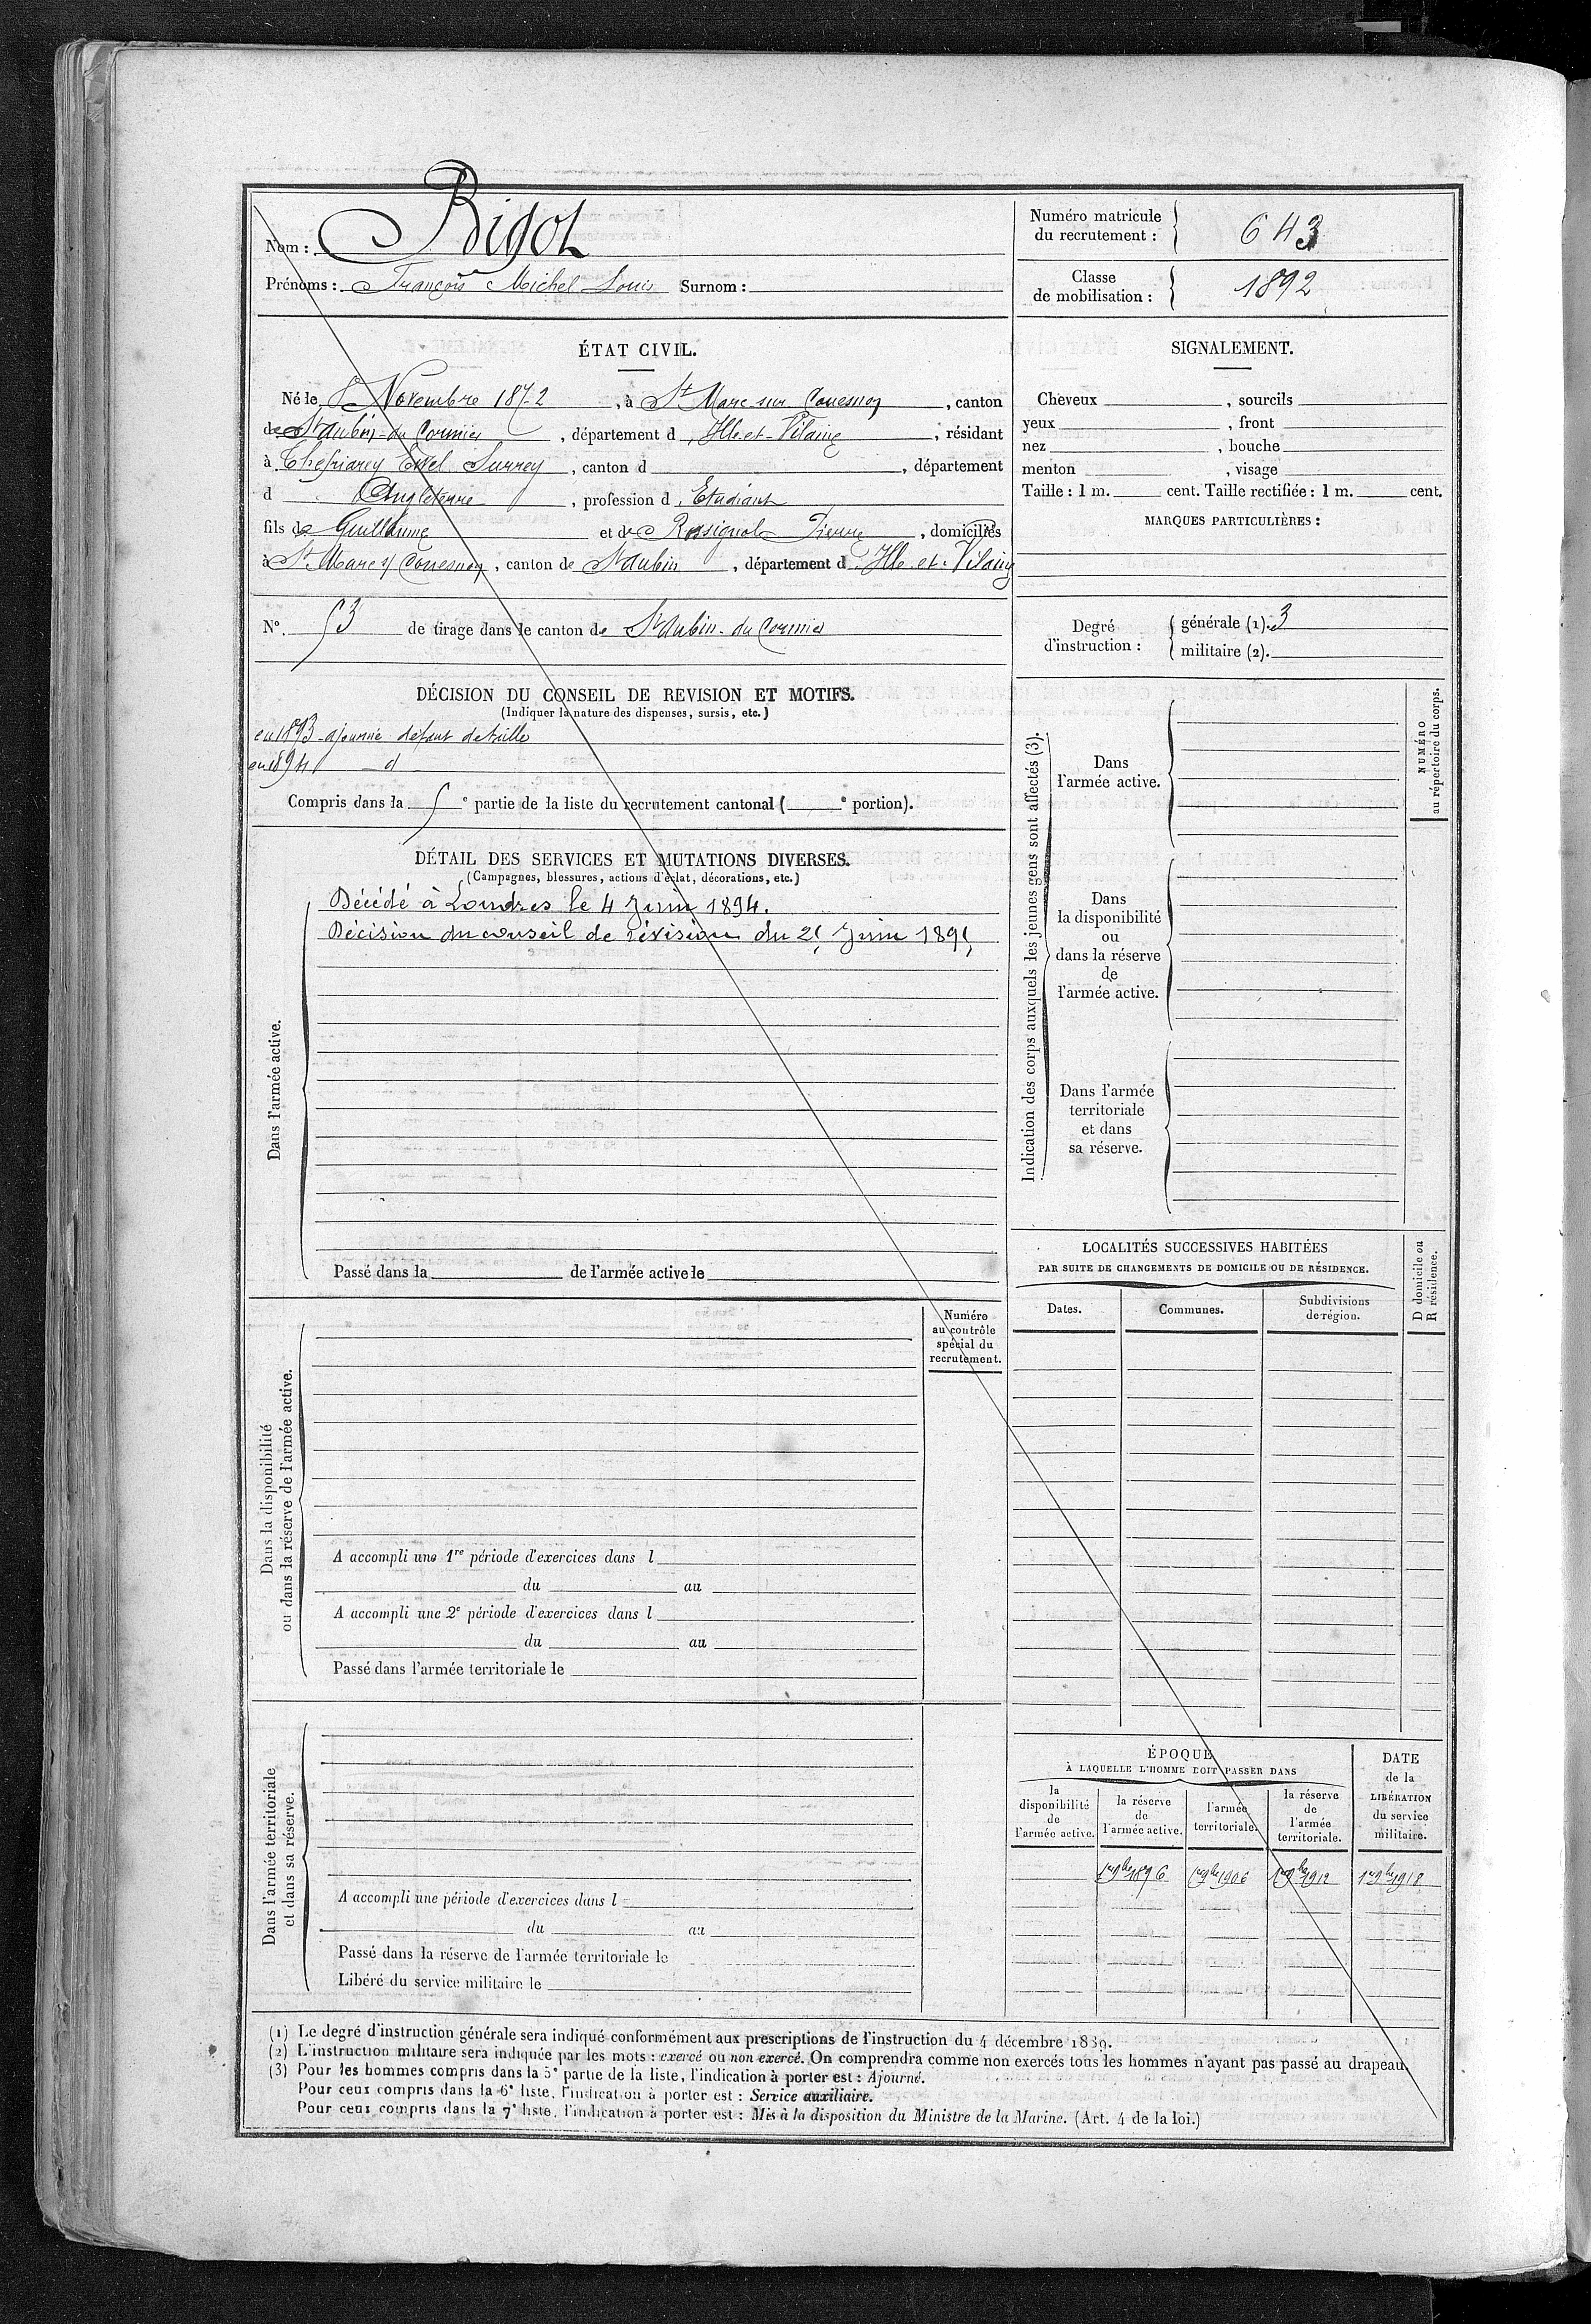 Nom : Bigot
Prénoms : François Michel Louis Surnom :
Numéro matricule du recrutement : 643
Classe de mobilisation : 1892
ÉTAT CIVIL.
Né le 8 Novembre 1872, à St Marc sur Couesnon, canton
de St Aubin-du Cormier, département d Ille-et-Vilaine, résidant
à Surrey, canton d , département
d Angleterre, profession d Etudiant
fils de Guillaume et de Rossignol Pierre, domiciliés
à St Marc s/ Couesnon, canton de St Aubin, département d Ille-et-Vilaine
N°. 53 de tirage dans le canton de St Aubin-du Cormier
SIGNALEMENT.
Cheveux , sourcils
yeux , front
nez , bouche
menton , visage
Taille : 1 m. cent. Taille rectifiée : 1 m. cent.
MARQUES PARTICULIÈRES :
Degré d'instruction :
générale (1). 3
militaire (2).
DÉCISION DU CONSEIL DE REVISION ET MOTIFS.
(Indiquer la nature des dispenses, sursis, etc.)
en 1893 ajourné défaut de taille
en 1894 d
Compris dans la 5e partie de la liste du recrutement cantonal ( e portion).
DÉTAIL DES SERVICES ET MUTATIONS DIVERSES.
(Campagnes, blessures, actions d'éclat, décorations, etc.)
Dans l'armée active.
Décédé à Londres le 4 Juin 1894.
Décision du conseil de révision du 25 Juin 1895
Passé dans la de l'armée active le
Indication des corps auxquels les jeunes gens sont affectés (3).
NUMÉRO
au répertoire du corps.
Dans
l'armée active.
Dans
la disponibilité
ou
dans la réserve
de
l'armée active.
Dans l'armée
territoriale
et dans
sa réserve.
LOCALITÉS SUCCESSIVES HABITÉES
PAR SUITE DE CHANGEMENTS DE DOMICILE OU DE RÉSIDENCE.
D domicile ou
R résidence.
Dates. Communes. Subdivisions de région.
Dans la disponibilité
ou dans la réserve de l'armée active.
Numéro
au contrôle
spécial du
recrutement.
A accompli une 1re période d'exercices dans l
du au
A accompli une 2e période d'exercices dans l
du au
Passé dans l'armée territoriale le
Dans l'armée territoriale
et dans sa réserve.
A accompli une période d'exercices dans l
du au
Passé dans la réserve de l'armée territoriale le
Libéré du service militaire le
ÉPOQUE
À LAQUELLE L'HOMME DOIT PASSER DANS
la disponibilité de l'armée active.
la réserve de l'armée active.
l'armée territoriale.
la réserve de l'armée territoriale.
DATE de la LIBÉRATION du service militaire.
1er 9bre 1896 1er 9bre 1906 1er 9bre 1912 1er 9bre 1918
(1) Le degré d'instruction générale sera indiqué conformément aux prescriptions de l'instruction du 4 décembre 1889.
(2) L'instruction militaire sera indiquée par les mots : exercé ou non exercé. On comprendra comme non exercés tous les hommes n'ayant pas passé au drapeau.
(3) Pour les hommes compris dans la 5e partie de la liste, l'indication à porter est : Ajourné.
Pour ceux compris dans la 6e liste, l'indication à porter est : Service auxiliaire.
Pour ceux compris dans la 7e liste, l'indication à porter est : Mis à la disposition du Ministre de la Marine. (Art. 4 de la loi.)